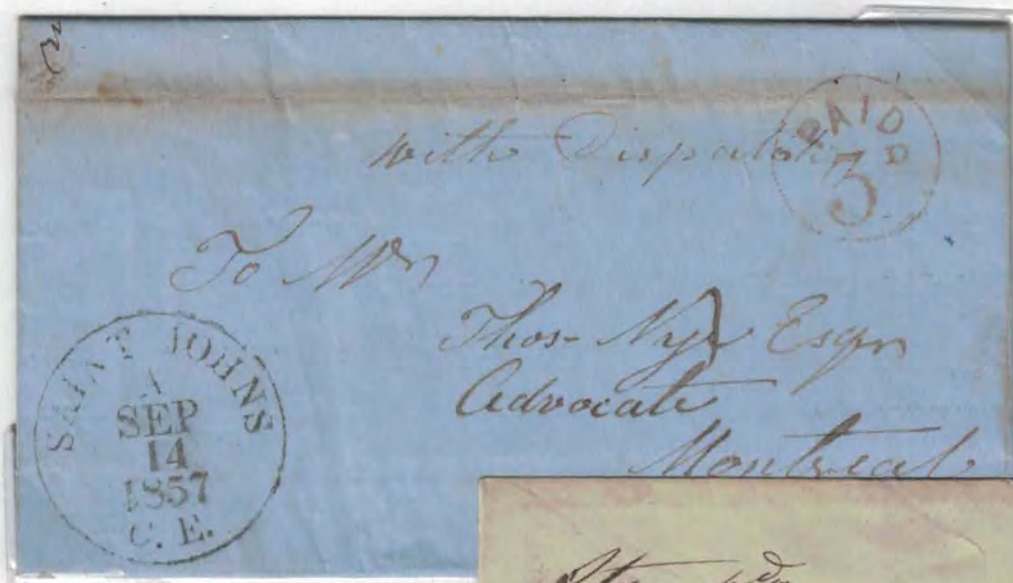 with Dispatch
PAID
3D
To Mr
Thos- Nye Esqr
Advocate
Montreal
SAINT JOHNS
A
SEP
14
1857
C. E.